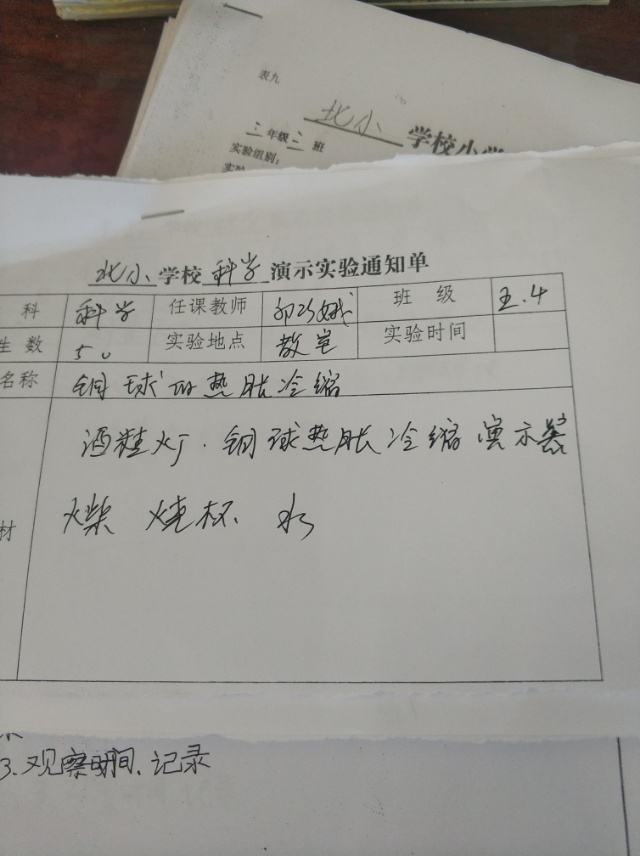 表九
北小 学校小学
三年级三班
实验组别:
北小 学校 科学 演示实验通知单
科 科学 任课教师 班 级 五.4
生 数 50 实验地点 教室 实验时间
名称 铜球的热胀冷缩
酒精灯. 铜球热胀冷缩演示器
材 火柴 烧杯 水
3.观察时间、记录